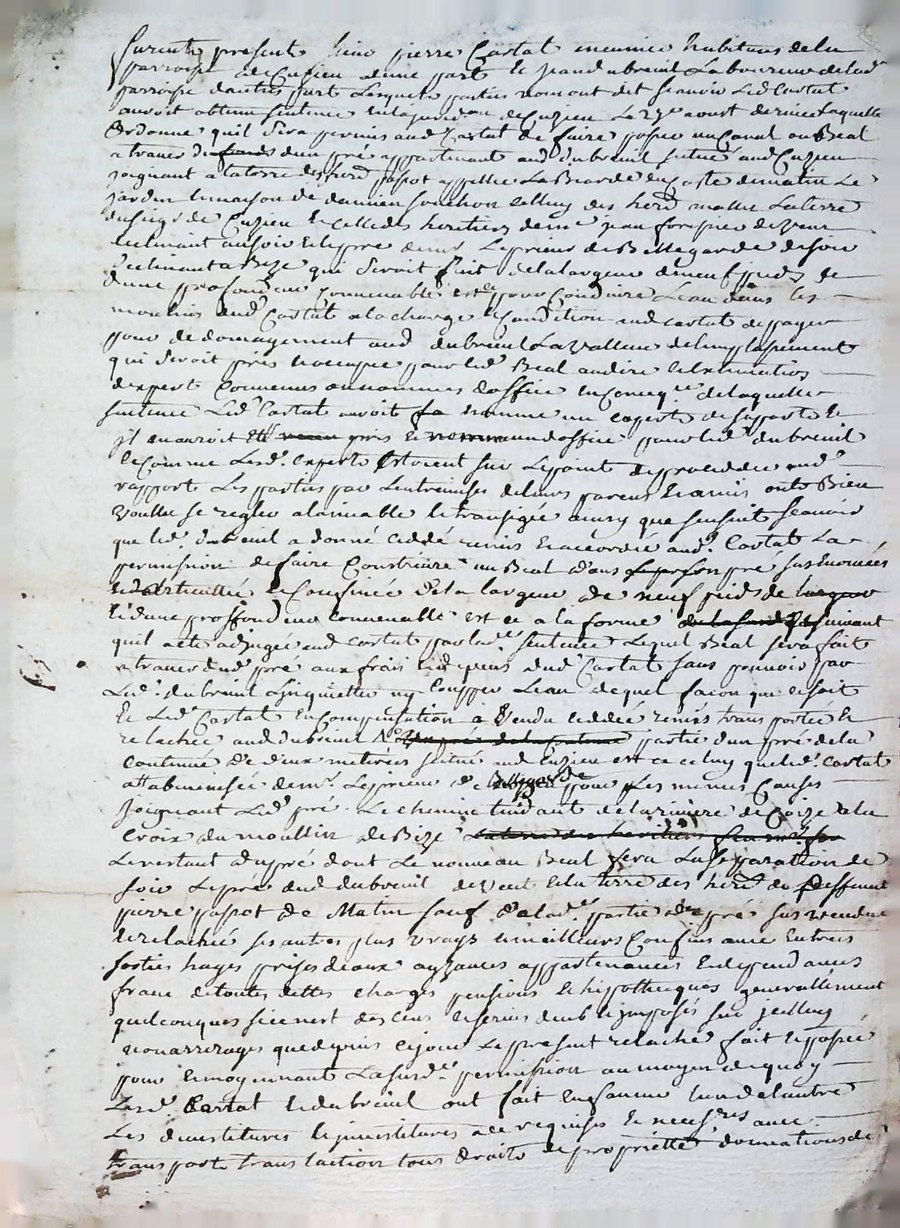 furent present sieur pierre Cartat meunier habitant de la
parroisse de Cuzieu dune part et jean dubreuil Laboureur de lad.
parroisse dautre part Lesquels parties nous ont dit scavoir Led Cartat
avoir obtenu sentence en la juridon de Cuzieu Le aoust dernier Laquelle
Ordonne quil sera permis aud Cartat de faire passer un Canal ou Beal
a travers du fonds dun pré appartenant aud dubreuil situé aud Cuzieu
joignant a la terre des herd papot appellée La de matin Le
jardin et maison de damien souchon celluy des herd La terre
du sieg de Cuzieu et celle des heritiers de mr jean forissier de vent
declinant au soir et le pré de mr Le prieur de Bellegarde de soir
declinant a Bize qui seroit fait de la largeur de neuf pieds et
dune profondeur convenable et ce pour Conduire Leau dans les
moulins dud Cartat a la charge et Condition aud cartat de payer
pour dedomagement aud dubreuil La valleur de lemplassement
qui seroit pris et occupé pour led Beal au dire et estimation
dexperts Convenus ou nommés doffice en conseqce de laquelle
sentence Led Cartat auroit nommé un expert de sa part et
jl en auroit eté pris et nommé un doffice pour led dubreuil
et comme Lesd. experts estoient sur Le point de proceder aud
rapport Les parties par Lentremises de leurs parens et amis ont Bien
voullu se regler a lamiable et transiger ainsy que sensuit scavoir
que led dubreuil a donné ceddé remis et accordé aud. Cartat La
permission de faire Construire un Beal dans le pré sus
et confinée de la largeur de neuf pieds de
et dune proffondeur convenable et ce a la forme suivant
quil a eté adjugé aud cartat par lade sentence Lequel Beal sera fait
a travers dud pré aux frais et depens dud Cartat sans pouvoir par
Led. dubreuil Linquietter ny Coupper Leau de quel facon que ce soit
Et Led Cartat en Compensation a vendu ceddé remis transporté et
relaché aud dubreuil partie dun pré de la
contenue de deux metérées situé aud Cuzieu et ce celuy que led cartat
de mr. Le prieur de Bellegarde pour Les memes Causes
Joignant Led pré Le chemin tendant de la riviere de Coize a la
croix du moullin de Bize
Le restant du pré dont Le nouveau Beal fera La separation de
soir Le pré dud dubreuil de vent et la terre des herd de deffunt
pierre papot de Matin sauf de lade partie de pré sus vendue
et relachée ses autres plus vrays et meilleurs Confins avec entrées
sorties hayes prises deaux ayzances appartenances et dependances
franc de toutes dettes charges pensions et hipotheques generallement
quelconques si ce nest des cens et servis deub et imposés sur jcelluy
non arrerages que depuis ce jour Le present relache fait et passé
pour et moyennant La susde permission au moyen de quoy
Lesd. Cartat et dubreuil ont fait en faveur lun de lautre
Les devestitures et jnvestitures a ce requises et necessres avec
transport translaction tous droits de propriette donations de